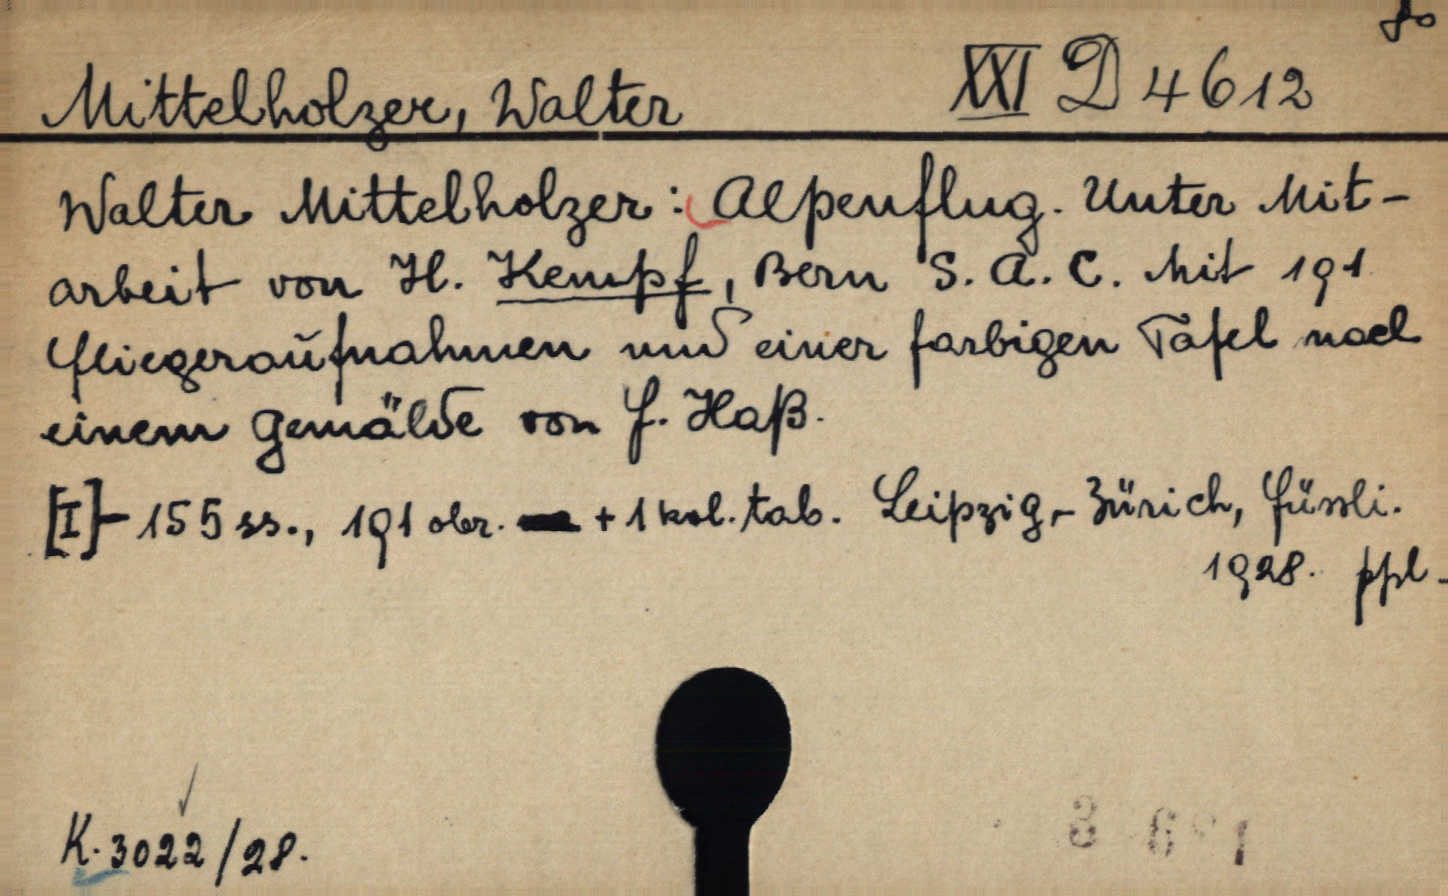 8o
Mittelholzer, Walter XXI D 4612
Walter Mittelholzer: Alpenflug. Unter Mit-
arbeit von H. Kempf, Bern S. A. C. Mit 191
Fliegeraufnahmen und einer farbigen Tafel nach
einem Gemälde von F. Haß.
[I]-155 ss., 191 obr. + 1 kol. tab. Leipzig-Zürich, Füssli.
1928. ppl-
K. 3022/28.